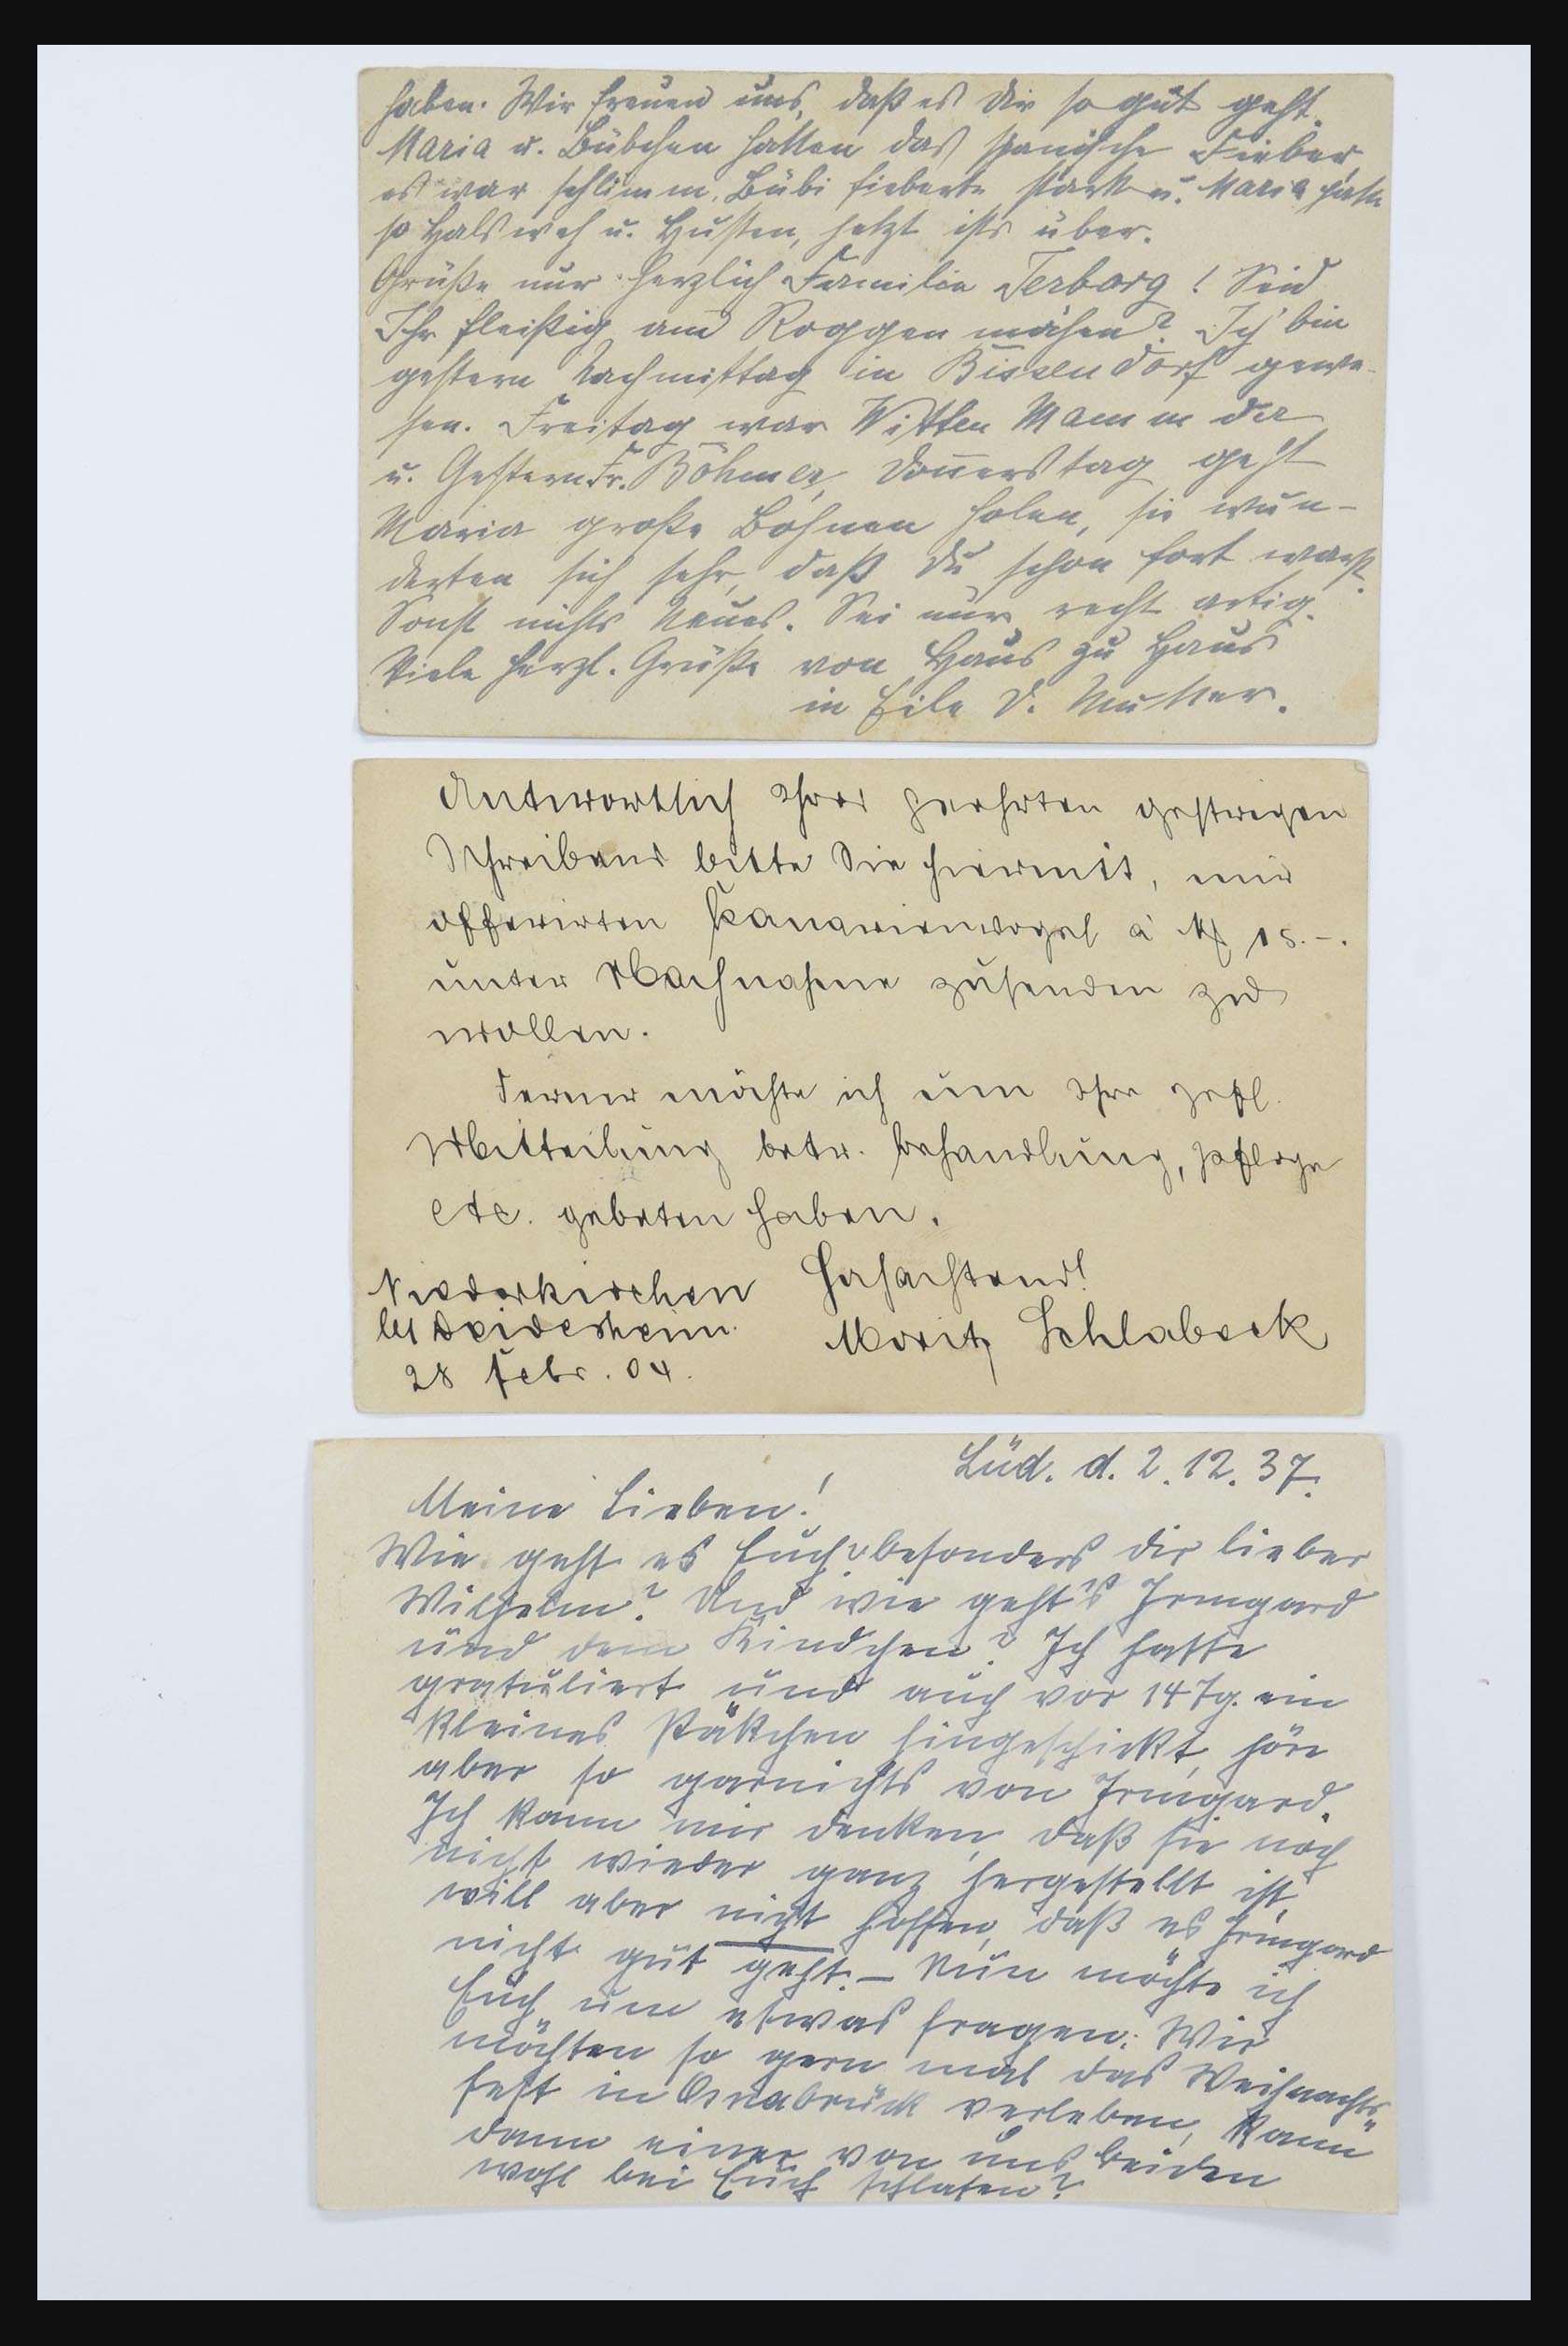 haben. Wir freuen uns, daß es Dir so gut geht.
Maria u. Bübchen hatten das spanische Fieber
es war schlimm, Bübi fieberte stark u. Maria hatte
so Halsweh u. Husten, jetzt ists über.
Grüße nur herzlich Familie Terborg! Seid
Ihr fleißig am Roggen mähen? Ich bin
gestern Nachmittag in Bissendorf gewe-
sen. Freitag war Witten Mamm da
u. Gestern Fr. Böhmer, Donnerstag geht
Maria große Bohnen holen, sie wun-
derten sich sehr, daß Du schon fort warst.
Sonst nichts Neues. Sei nur recht artig.
Viele herzl. Grüße von Haus zu Haus
in Eile D. Mutter.
Antwortlich Ihres geehrten gestrigen
Schreibens bitte Sie hiermit, mir
offerirten Kanarienvogel à M 15.-.
unter Nachnahme zusenden zu
wollen.
Ferner möchte ich um Ihre gefl.
Mitteilung betr. Behandlung, Pflege
etc. gebeten haben.
Hochachtend!
Niederkirchen
bei Deidesheim
28 Febr. 04.
Moritz Schlabeck
Lüd. d. 2.12.37.
Meine Lieben!
Wie geht es Euch, besonders dir lieber
Wilhelm? Und wie geht's Irmgard
und dem Kindchen? Ich hatte
gratuliert und auch vor 14 Tg. ein
kleines Päckchen hingeschickt, höre
aber so garnichts von Irmgard.
Ich kann mir denken, daß sie noch
nicht wieder ganz hergestellt ist,
will aber nicht hoffen, daß es Irmgard
nicht gut geht. – Nun möchte ich
Euch um etwas fragen: Wir
möchten so gern mal das Weihnachts-
fest in Osnabrück verleben, kann
dann einer von uns beiden
wohl bei Euch schlafen?